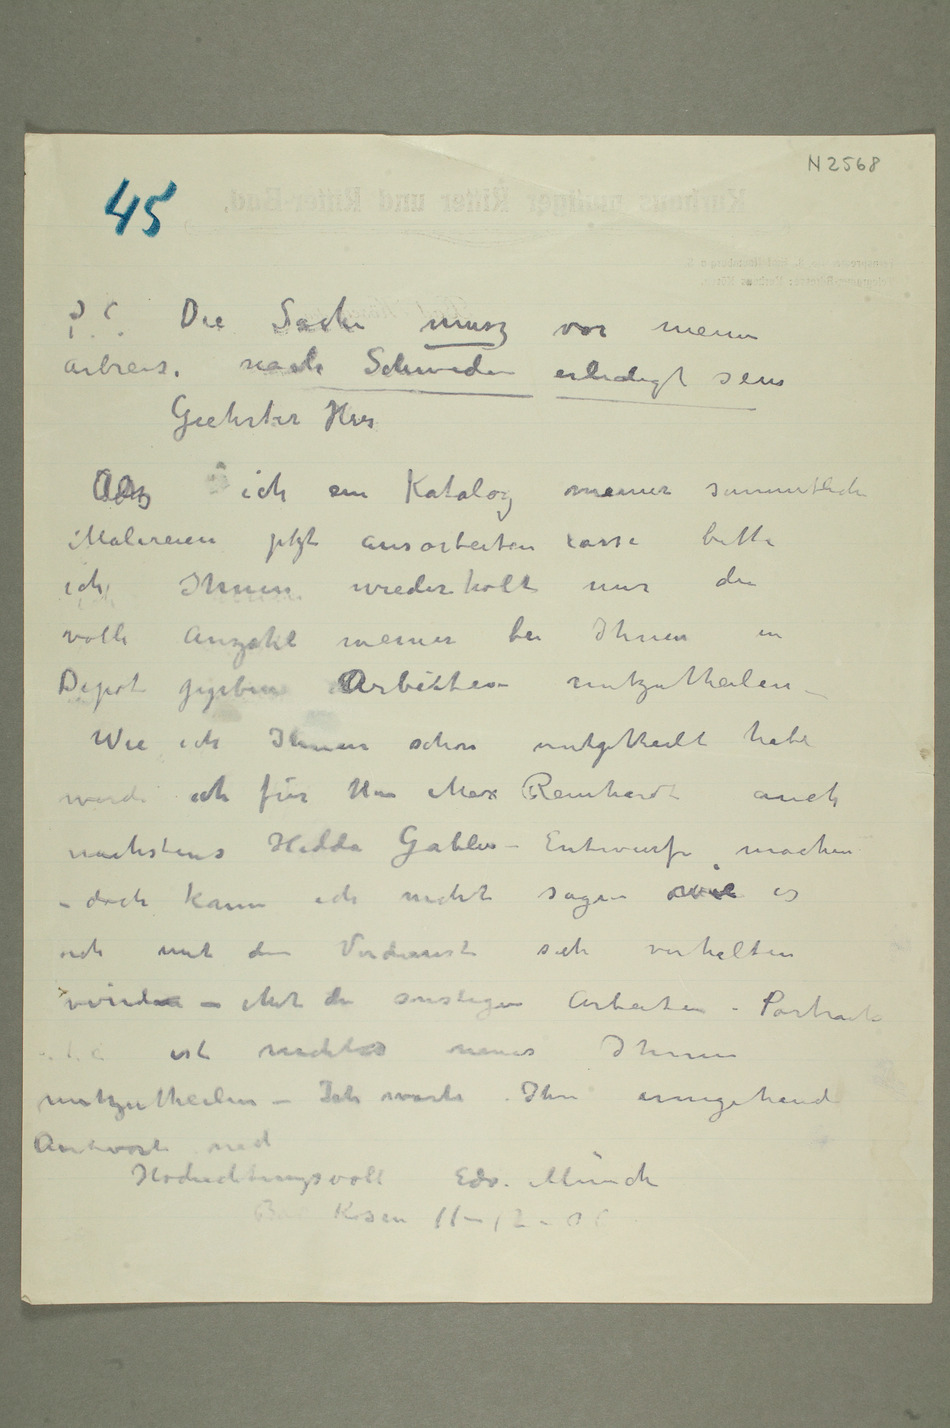 N 2568
45
P.S. Die Sache musz vor meine
abreis. nach Schweden erledigt sein
Geehrter Herr
ich ein Katalog meiner sammtlich
Malereien jetzt ausarbeiten lasse bitte
ich Ihnen wiederholt mir die
volle Anzahl meiner bei Ihnen in
Depot gegebene Arbeiten mitzutheilen –
Wie ich Ihnen schon mitgetheilt habe
werde ich für Max Reinhardt auch
nachstens Hedda Gabler – Entwurfe machen
– doch kann ich nicht sagen wie es
sich mit den Verdienste sich verhalten
würden – Mit die sonstigen Arbeiten – Portraits
ist nichts neues Ihnen
mitzutheilen – Ich warte Ihre umgehend
Antwort und
Hochachtungsvoll Edv. Munch
Bad Kosen 11 – 12 –